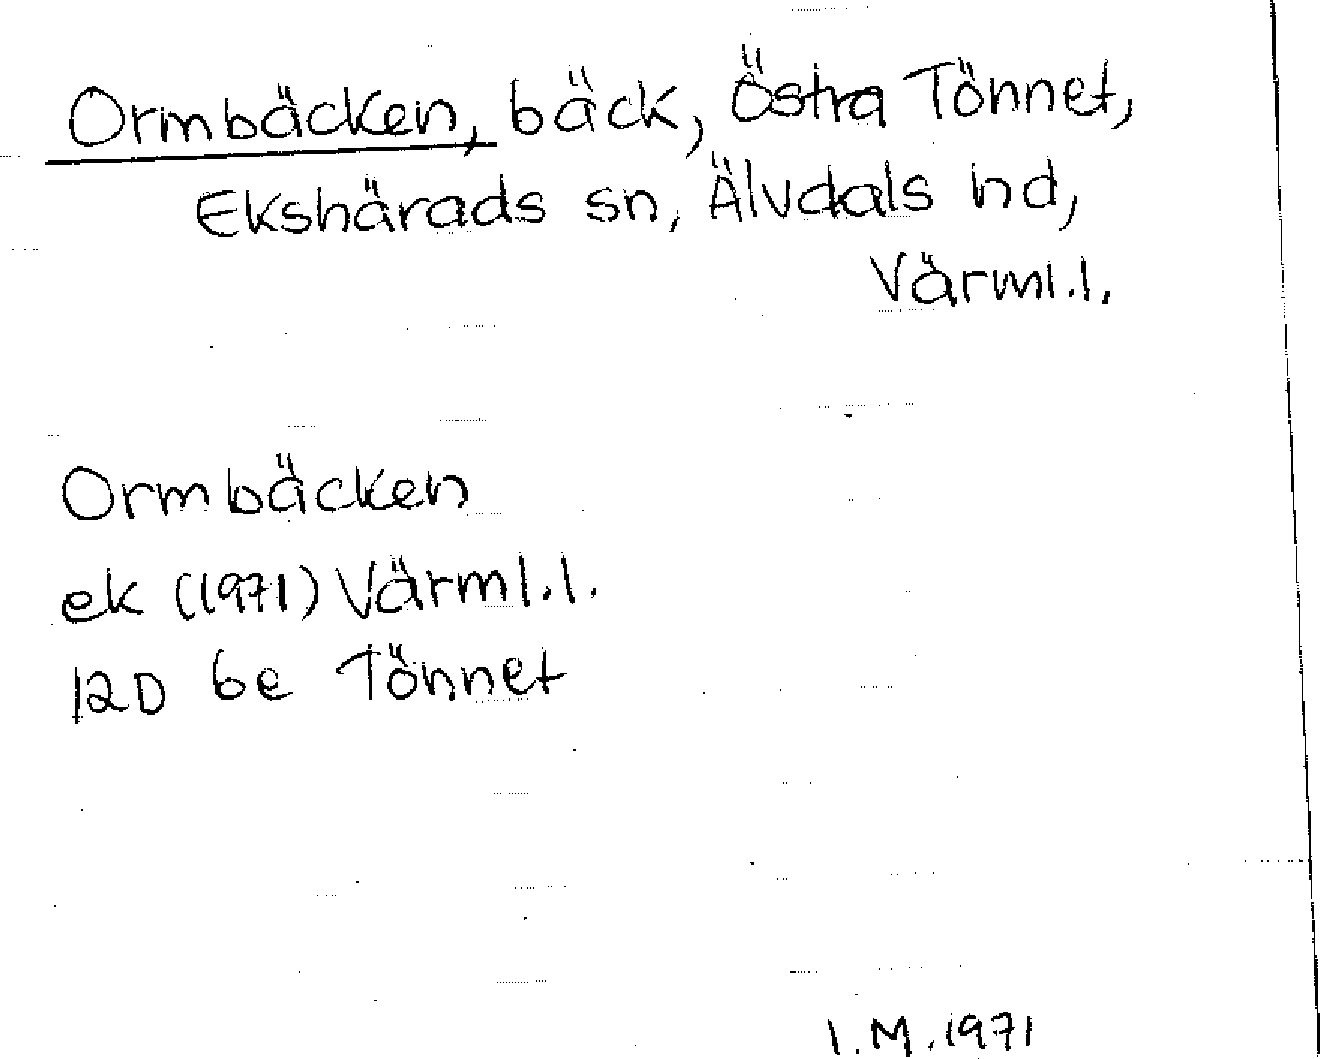 Ormbäcken, bäck, Östra Tönnet,
Ekshärads sn, Älvdals hd,
Värml.l.
Ormbäcken
ek (1971) Värml.l.
12D 6e Tönnet
I.M.1971